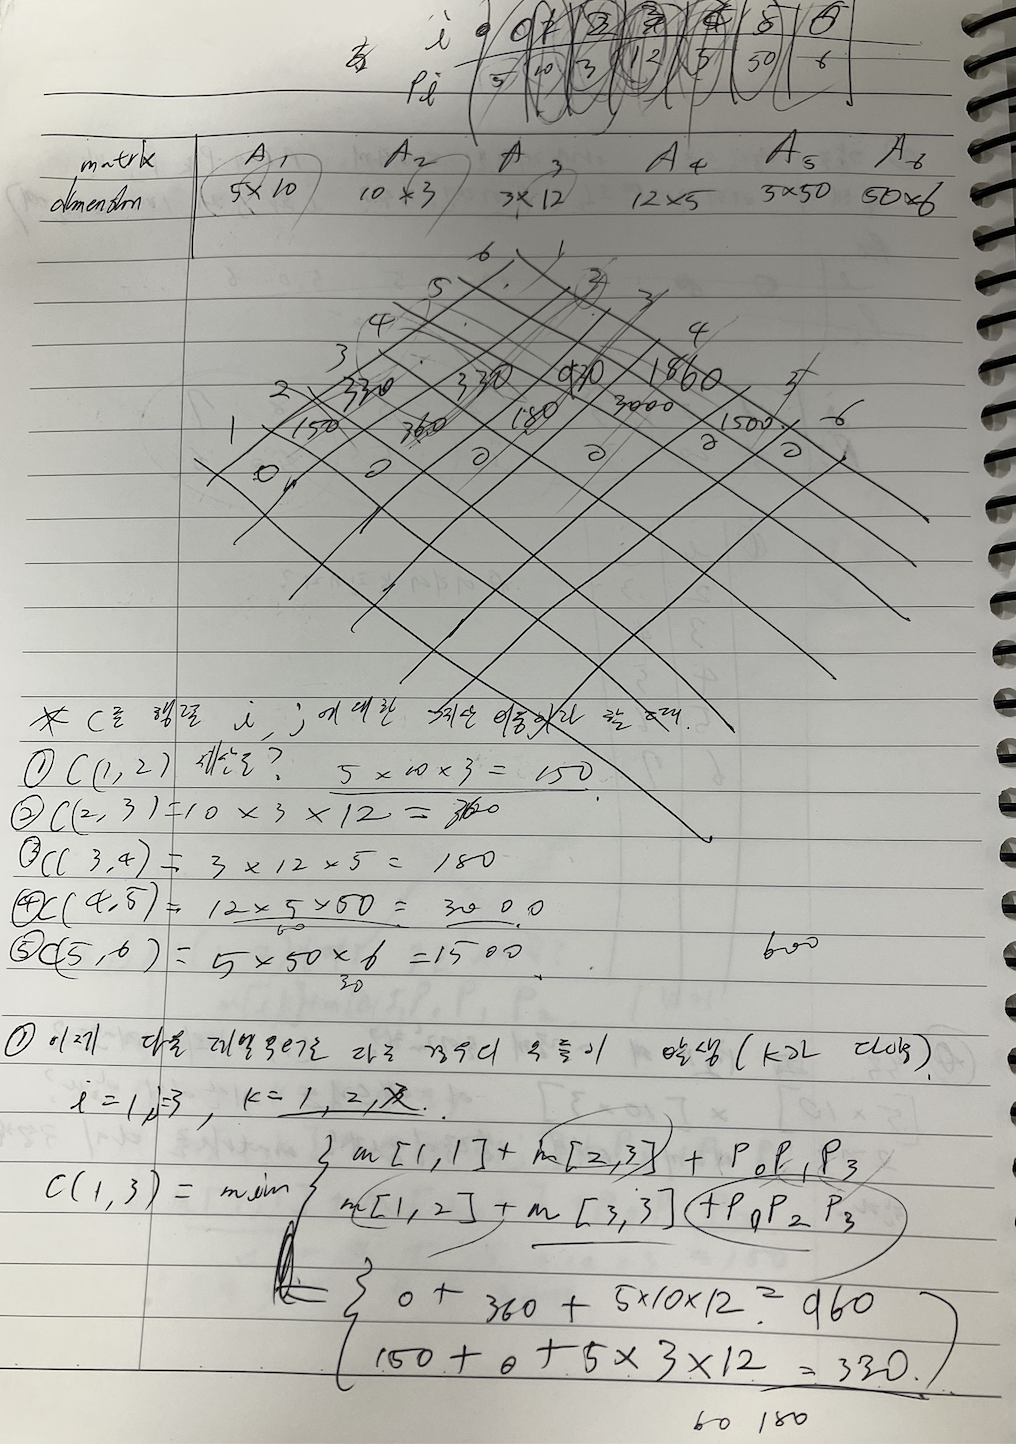 i 0 1 2 3 4 5 6
Pi 5 10 3 12 5 50 6
matrix A1 A2 A3 A4 A5 A6
dimension 5×10 10×3 3×12 12×5 5×50 50×6
6 1
5 2
4 3
3 4
2 330 330 930 1860 5
1 150 360 180 3000 1500 6
0 0 0 0 0 0
※ C를 행렬 i, j에 대한 이라 할 때.
① C(1,2) 계산은? 5 × 10 × 3 = 150
② C(2,3) = 10 × 3 × 12 = 360
③ C(3,4) = 3 × 12 × 5 = 180
④ C(4,5) = 12 × 5 × 50 = 3000
60
⑤ C(5,6) = 5 × 50 × 6 = 1500.
30
600
① 이제 다음 부터는 다른 경우의 수들이 발생 (K가 다양).
i=1, j=3, K= 1, 2,
C(1,3) = min { m[1,1] + m[2,3] + P0P1P3
m[1,2] + m[3,3] + P0P2P3
= { 0 + 360 + 5×10×12 = 960
150 + 0 + 5 × 3 × 12 = 330.
60 180